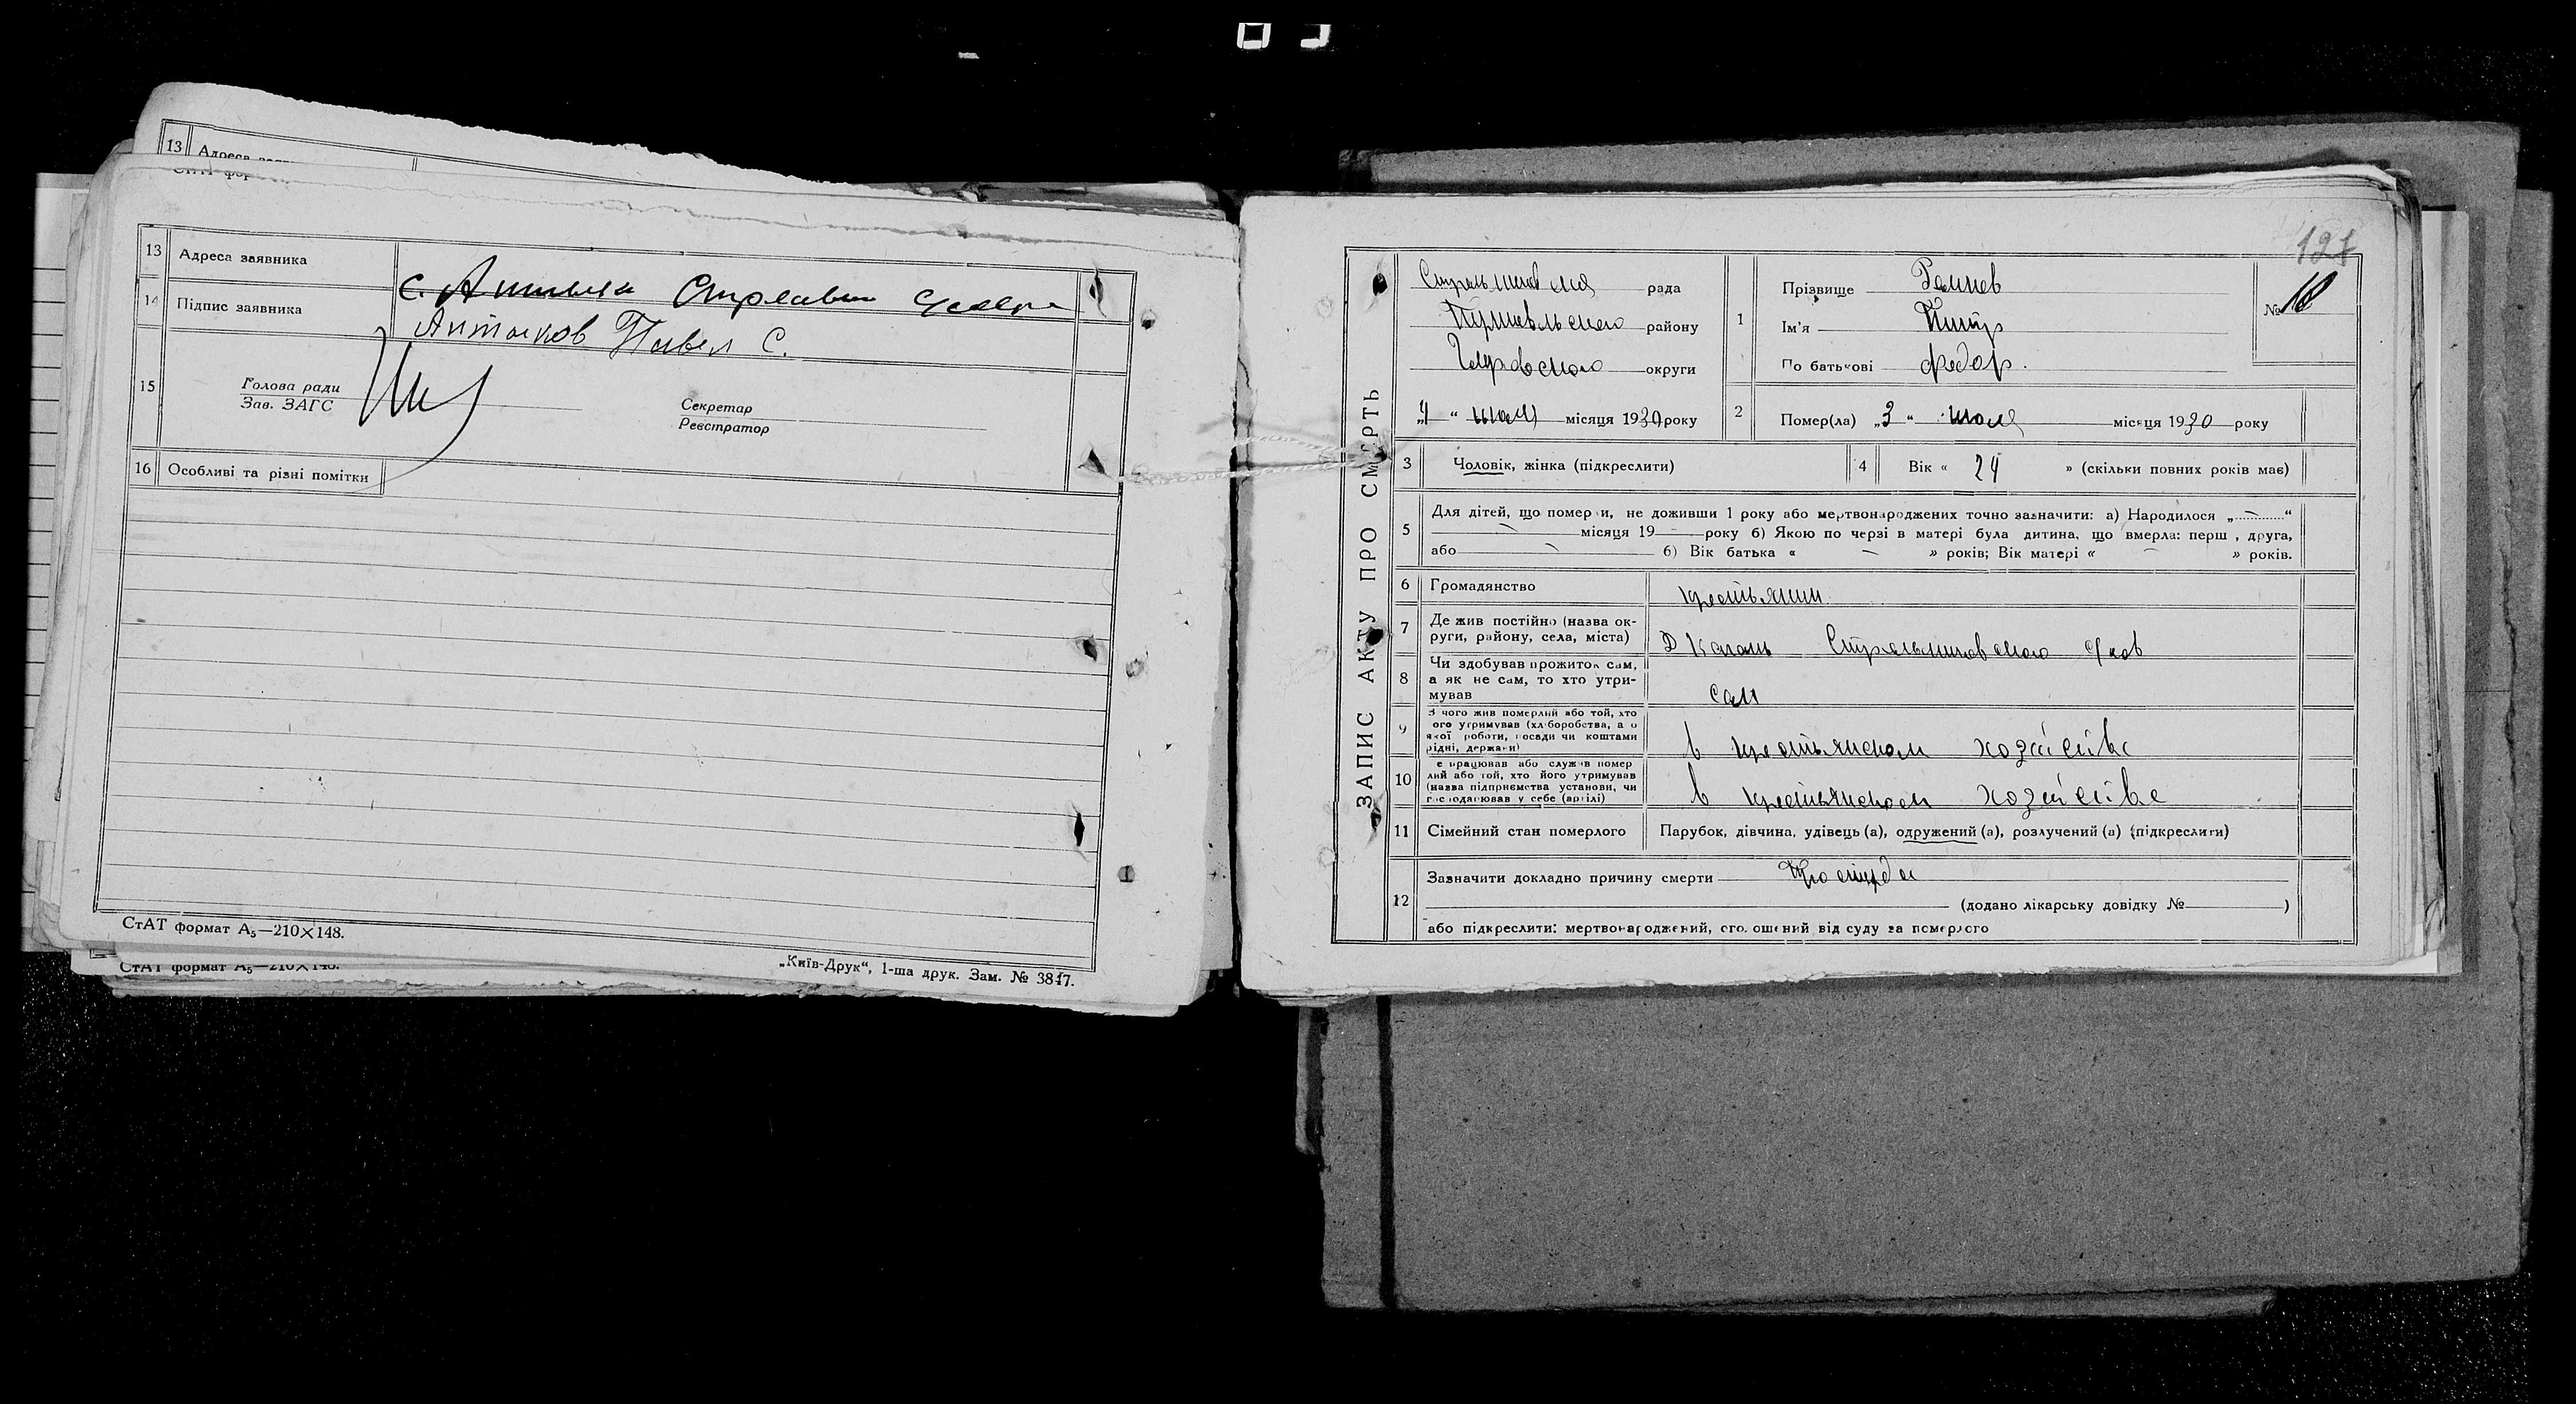 13 Адреса заявника
СтАТ фор
13 Адреса заявника с. Стрельник
14 Підпис заявника Антонов Павел С.
15 Голова ради
Зав. ЗАГС
Секретар
Реєстратор
16 Особливі та різні помітки
СтАТ формат А5—210×148.
СтАТ формат А5—210×148.
„Київ-Друк“, 1-ша друк. Зам. № 3847.
127
ЗАПИС АКТУ ПРО СМЕРТЬ
рада
району
округи
„4“ мая місяця 1930 року
1 Прізвище
Ім'я Питр
По батькові Федор.
№ 18
2 Помер(ла) „3“ мая місяця 1930 року
3 Чоловік, жінка (підкреслити)
4 Вік « 24 » (скільки повних років має)
5 Для дітей, що померли, не доживши 1 року або мертвонароджених точно зазначити: а) Народилося „ — “
— місяця 19 — року б) Якою по черзі в матері була дитина, що вмерла: перш , друга,
або — б) Вік батька « — » років; Вік матері « — » років.
6 Громадянство крестьянин
7 Де жив постійно (назва ок-
руги, району, села, міста) Д
8 Чи здобував прожиток сам,
а як не сам, то хто утри-
мував сам
9 З чого жив померлий або той, хто
ого утримував (хліборобства, а о
якої роботи, посади чи коштами
рідні, держави) в крестьянском хозяйстве
10 е працював або служив помер
лий або той, хто його утримував
(назва підприємства установи, чи
господарював у себе (артілі) в крестьянском хозяйстве
11 Сімейний стан померлого Парубок, дівчина, удівець (а), одружений (а), розлучений (а) (підкреслити)
12 Зазначити докладно причину смерти Простуда
(додано лікарську довідку № )
або підкреслити: мертвонароджений, оголошений від суду за померлого